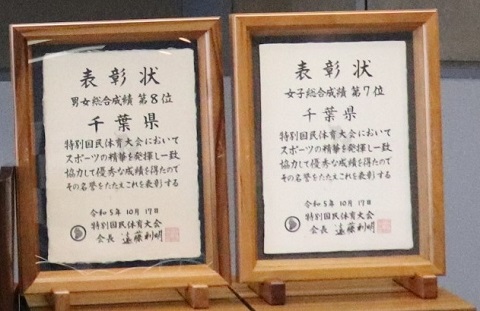 表彰状
男女総合成績 第8位
千葉県
特別国民体育大会において
スポーツの精華を発揮し一致
協力して優秀な成績を得たので
その名誉をたたえこれを表彰する
令和5年10月17日
特別国民体育大会
会長 遠藤利明
表彰状
女子総合成績 第7位
千葉県
特別国民体育大会において
スポーツの精華を発揮し一致
協力して優秀な成績を得たので
その名誉をたたえこれを表彰する
令和5年10月17日
特別国民体育大会
会長 遠藤利明